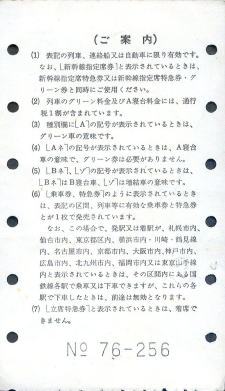 （ご　案　内）
(1) 表記の列車、連絡船又は自動車に限り有効です。
なお、〔新幹線指定席券〕と表示されているときは、
新幹線指定席特急券又は新幹線指定席特急券・グ
リーン券と同時にご使用ください。
(2) 列車のグリーン料金及びＡ寝台料金には、通行
税1割が含まれています。
(3) 種別欄に〔Ａ〕の記号が表示されているときは、
グリーン車の意味です。
(4) 〔Ａネ〕の記号が表示されているときは、Ａ寝台
車の意味で、グリーン券は必要がありません。
(5) 〔Ｂネ〕、〔ゾ〕の記号が表示されているときは、
〔ＢネはＢ寝台車、〔ゾ〕は増結車の意味です。
(6) 〔乗車券、特急券〕のように表示されているとき
は、表記の区間、列車等に有効な乗車券と特急券
とが1枚で発売されています。
なお、この場合で、発駅又は着駅が、札幌市内、
仙台市内、東京都区内、横浜市内・川崎・鶴見線
内、名古屋市内、京都市内、大阪市内、神戸市内、
広島市内、北九州市内、福岡市内又は東京山手線
内と表示されているときは、その区間内にある国
鉄線各駅で乗車又は下車できますが、これらの各
駅で下車したときは、前途は無効となります。
(7) 〔立席特急券〕と表示されているときは、着席で
きません。
№ 76-256